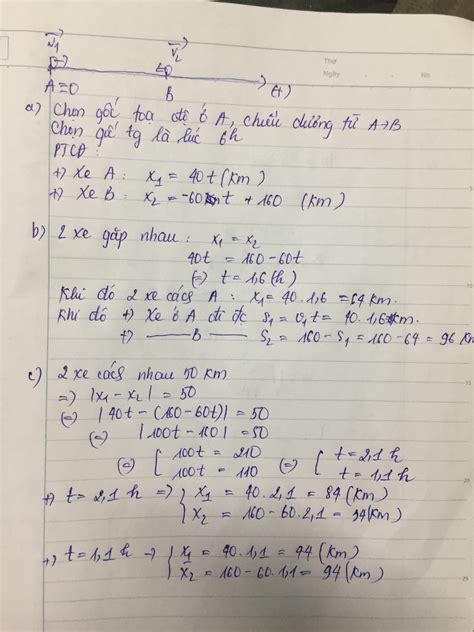 v₁ v₂
Thứ
Ngày No
A≡O B (+)
a) Chọn gốc toạ độ ở A, chiều dương từ A→B
Chọn gốc tg là lúc 6h
PTCĐ:
+) Xe A: x₁ = 40t (km)
+) Xe B: x₂ = -60t + 160 (km)
b) 2 xe gặp nhau: x₁ = x₂
40t = 160-60t
(=) t = 1,6 (h)
Khi đó 2 xe cách A: x₁ = 40.1,6 = 64 km.
Khi đó +) Xe ở A đi đc S₁ = v₁t = 40.1,6 km.
+) —— B —— S₂ = 160 - S₁ = 160-64 = 96 km
c) 2 xe cách nhau 50 km
=) |x₁ - x₂| = 50
(=) |40t - (160-60t)| = 50
(=) |100t - 160| = 50
(=) [ 100t = 210 (=) [ t = 2,1 h
100t = 110 t = 1,1 h
+) t = 2,1 h =) { x₁ = 40.2,1 = 84 (km)
x₂ = 160-60.2,1 = 34 (km)
+) t = 1,1 h → { x₁ = 40.1,1 = 44 (km)
x₂ = 160-60.1,1 = 94 (km)